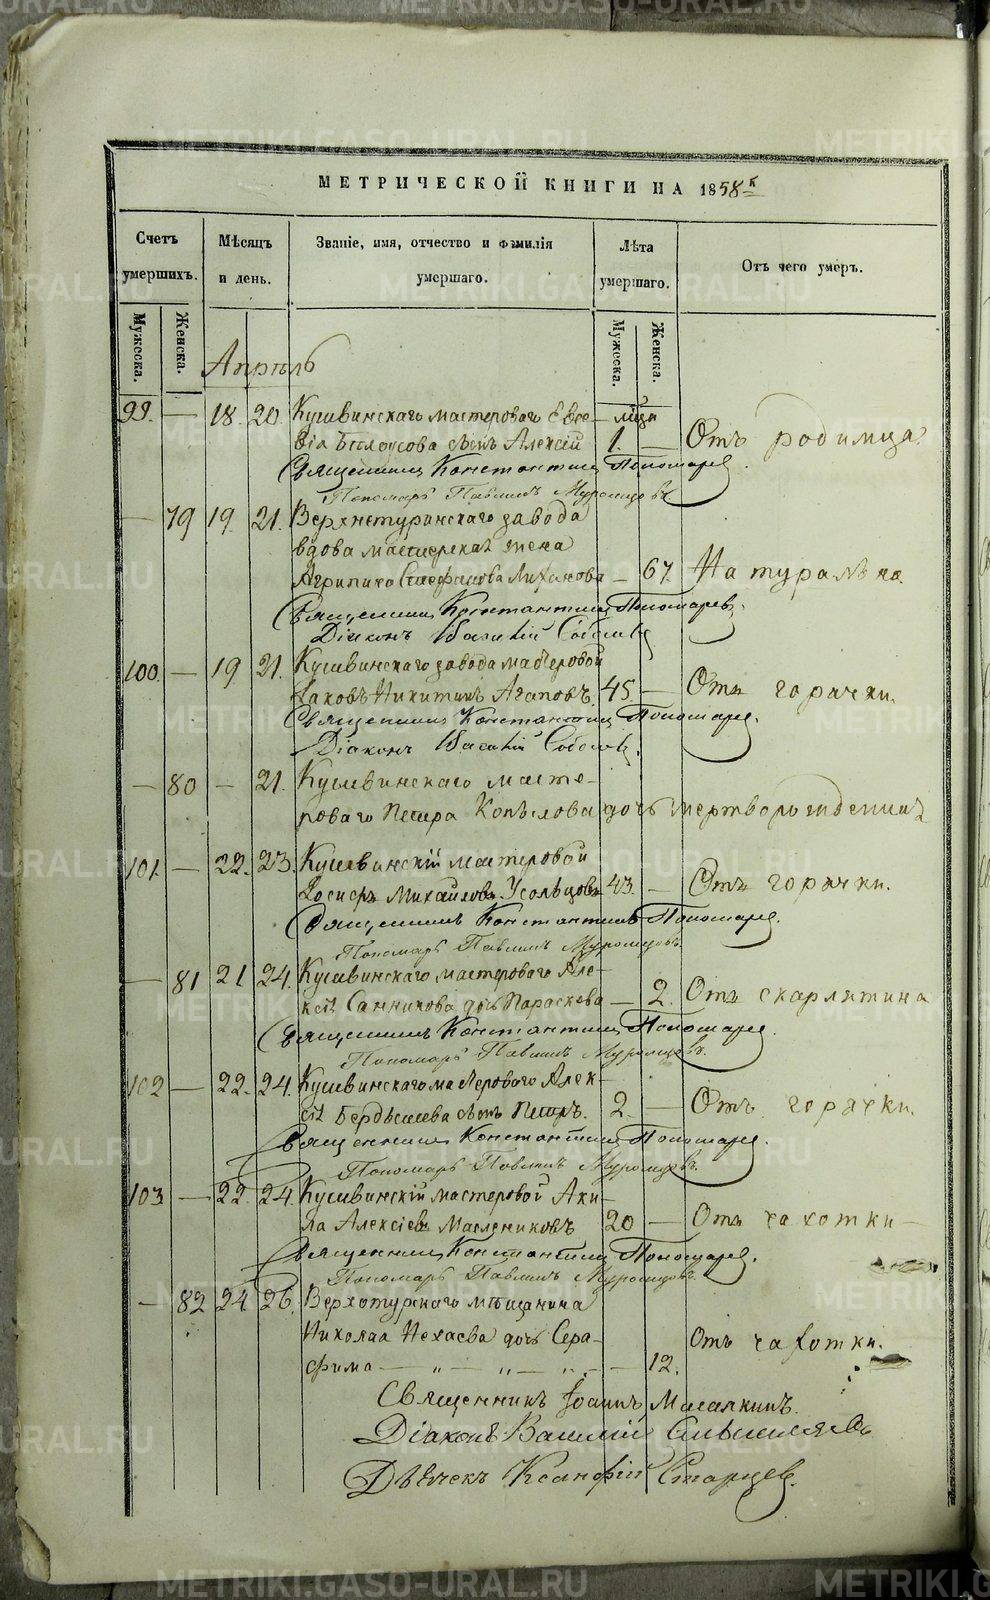 МЕТРИЧЕСКОЙ КНИГИ НА 1858 г.
Счетъ умершихъ.
Мѣсяцъ и день.
Званіе, имя, отчество и фамилія умершаго.
Лѣта умершаго.
Отъ чего умеръ.
Мужеска. Женска.
Мужеска. Женска.
Апрѣль
99. — 18. 20. Кушвинскаго мастероваго Евсе-
вія Бѣлоусова сынъ Алексій 1. — Отъ родимца
Священникъ Константинъ Пономаревъ.
Пономарь Павлинъ Муромцовъ
— 79 19. 21. Верхнетуринскаго завода
вдова мастерская жена
Агрипина Стефанова — 67. Натурально.
Священникъ Константинъ Пономаревъ.
Діаконъ Василій
100. — 19 21. Кушвинскаго завода мастеровой
Іаковъ Никитинъ Агаповъ. 45 — Отъ горячки.
Священникъ Константинъ Пономаревъ.
Діаконъ Василій
— 80 — 21. Кушвинскаго масте-
роваго Петра Копылова дочь мертворожденная
101. — 22. 23. Кушвинскій мастеровой
Михайловъ Усольцовъ 43. — Отъ горячки.
Священникъ Константинъ Пономаревъ.
Пономарь Павлинъ Муромцовъ.
— 81 21 24. Кушвинскаго мастероваго Але-
ксія Санникова дочь Параскева — 2. Отъ скарлятина
Священникъ Константинъ Пономаревъ.
Пономарь Павлинъ Муромцовъ.
102 — 22. 24. Кушвинскаго мастероваго Алек-
сія сынъ Петръ. 2. — Отъ горячки.
Священникъ Константинъ Пономаревъ.
Пономарь Павлинъ Муромцовъ.
103 — 22 24. Кушвинскій мастеровой Аки-
ла Алексіевъ Маслениковъ 20 — Отъ чахотки —
Священникъ Константинъ Пономаревъ.
Пономарь Павлинъ Муромцовъ.
— 82 24 26. Верхотурскаго мѣщанина
Николаа Нехаева дочь Сера- Отъ чахотки.
фима — „ — „ — „ — 12.
Священникъ Іоаннъ
Діаконъ Василій
Дьячекъ Ксанфій Старцев.
METRIKI.GASO-URAL.RU